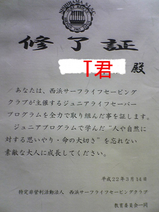 修了証
T君 殿
あなたは、西浜サーフライフセービング
クラブが主催するジュニアライフセーバー
プログラムを全力で取り組んだ事を証します。
ジュニアプログラムで学んだ"人や自然に
対する思いやり・命の大切さ"を忘れない
素敵な大人に成長してください。
平成22年3月14日
特定非営利活動法人 西浜サーフライフセービングクラブ
教育委員会一同